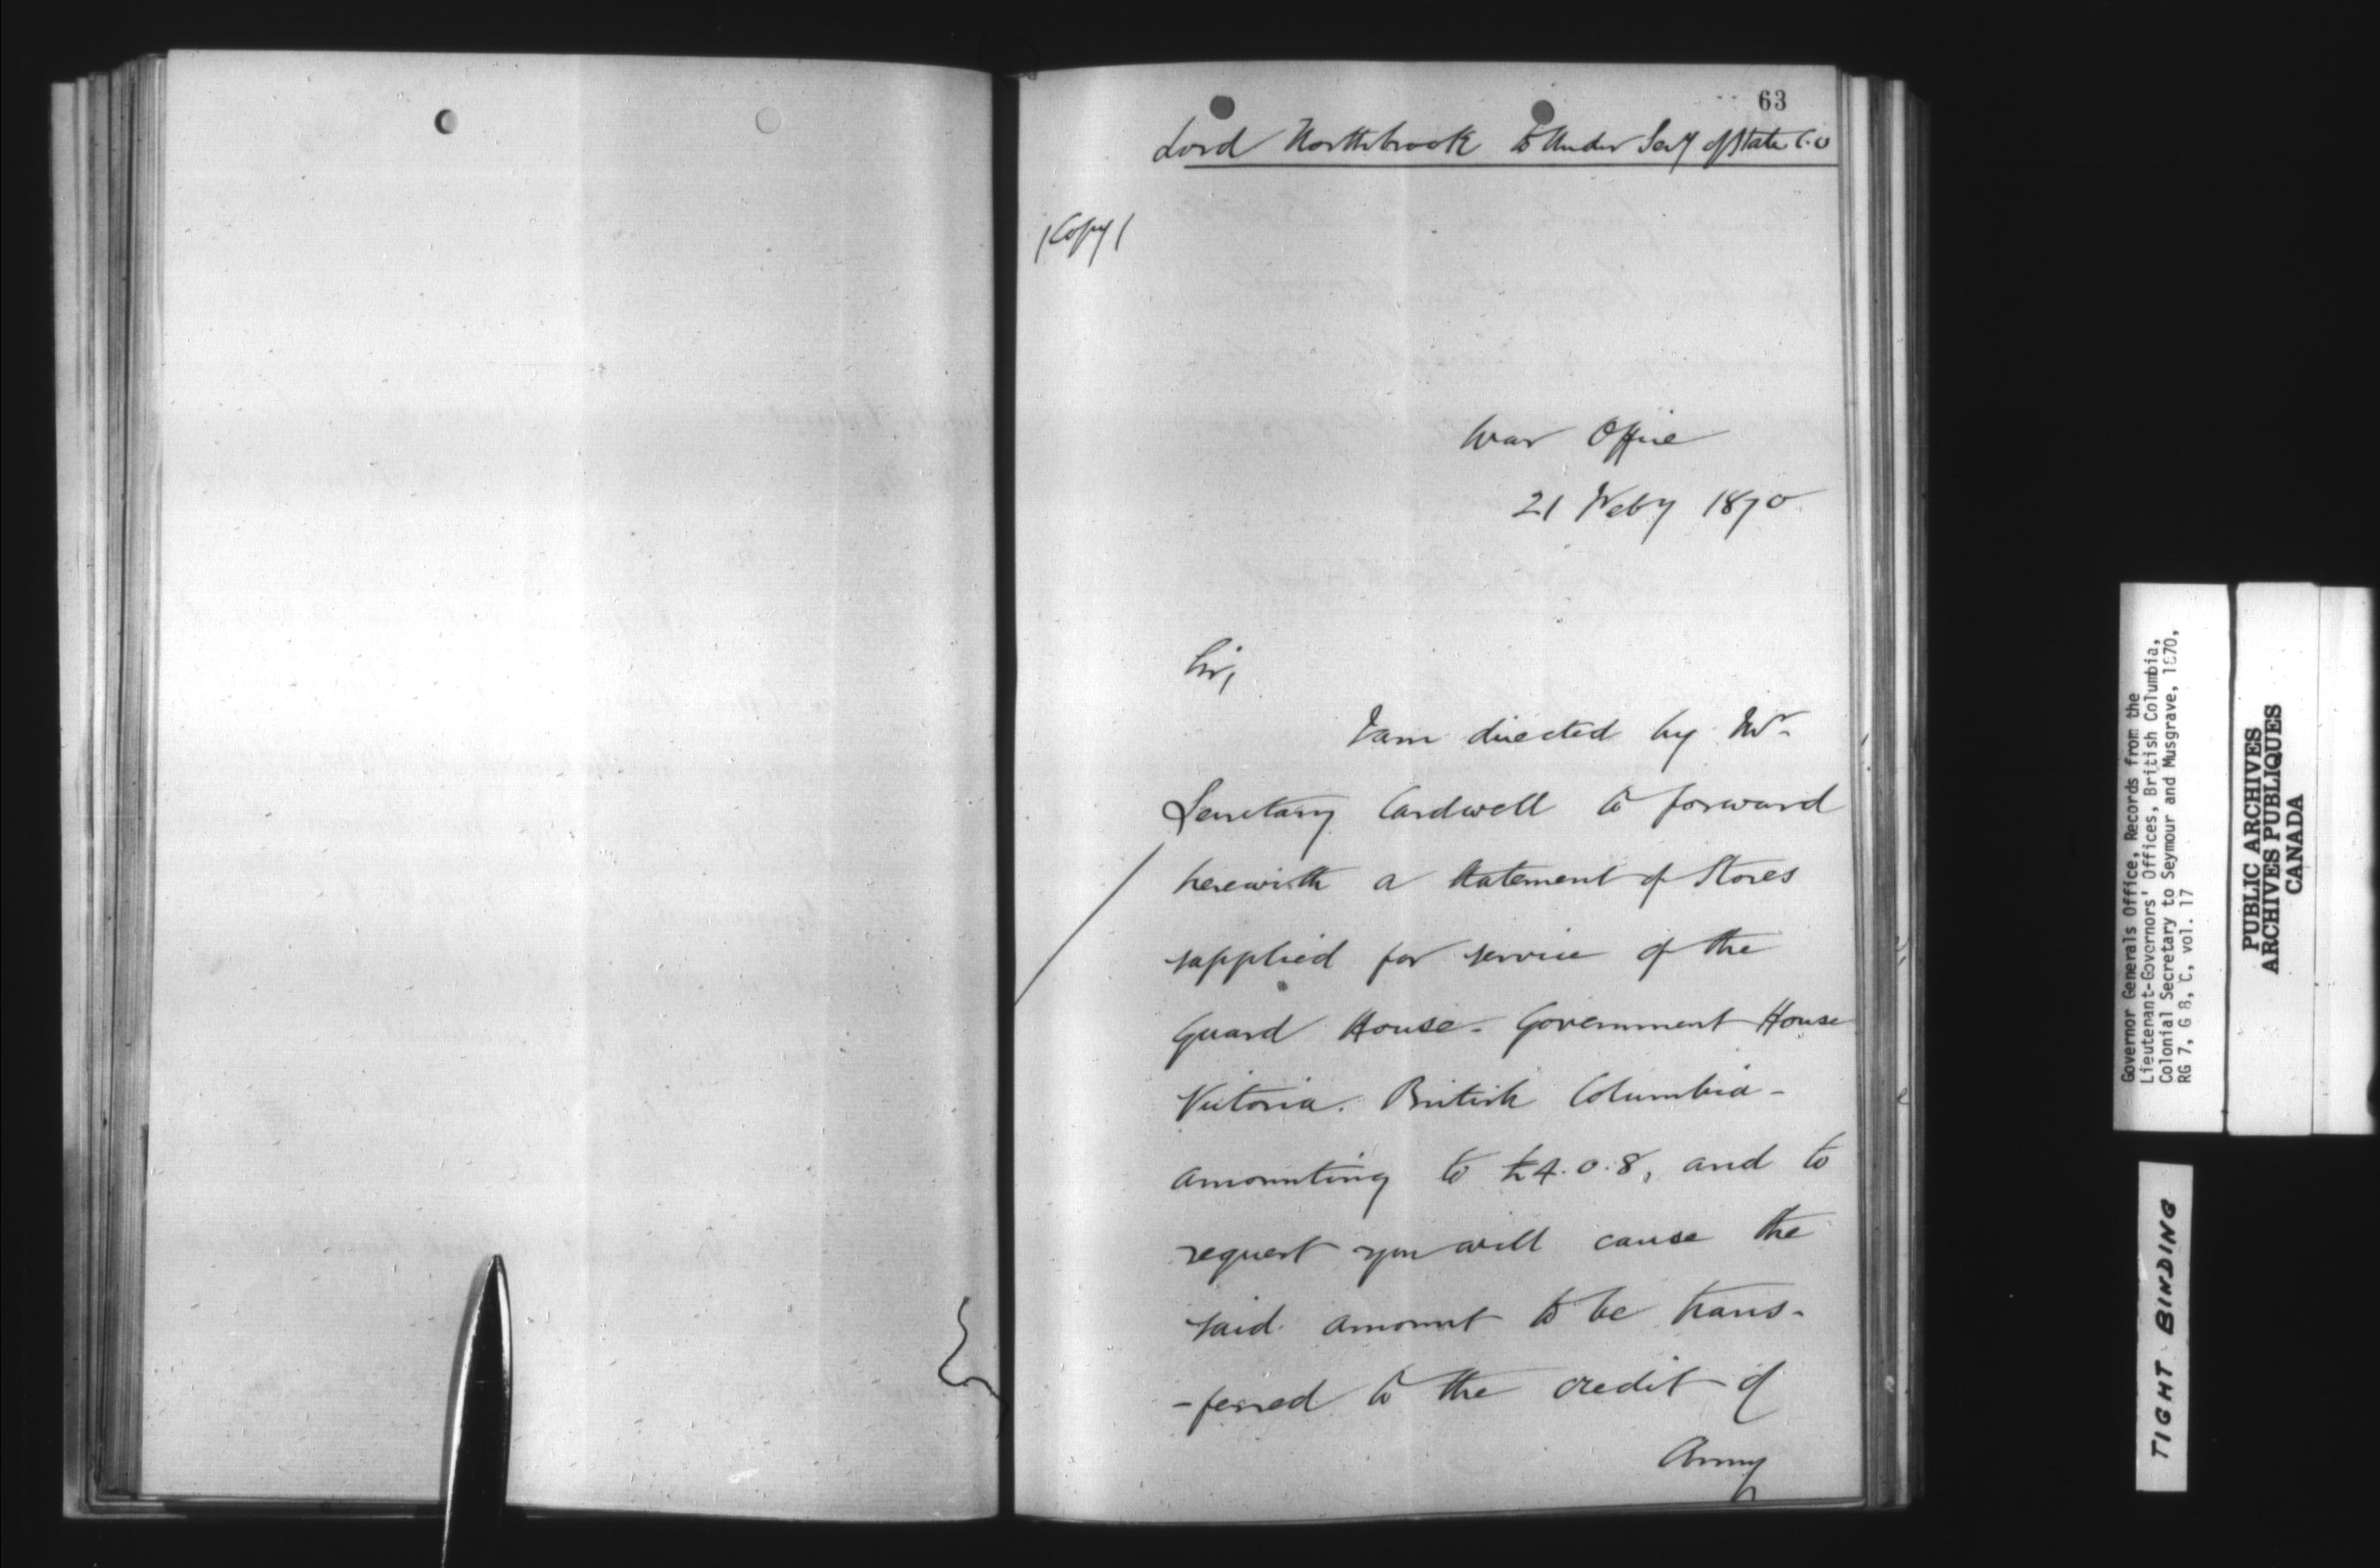 63
Lord Northbrook to Under Secy of State C.O
(Copy)
War Office
21 Feby 1870
Sir,
I am directed by Mr
Secretary Cardwell to forward
herewith a statement of Stores
supplied for service of the
Guard House - Government House
Victoria. British Columbia -
amounting to £4.0.8, and to
request you will cause the
said amount to be trans-
-ferred to the credit of
Army
Governor Generals Office, Records from the
Lieutenant-Governors' Offices, British Columbia,
Colonial Secretary to Seymour and Musgrave, 1870,
RG 7, G 8, C, vol. 17
PUBLIC ARCHIVES
ARCHIVES PUBLIQUES
CANADA
TIGHT BINDING